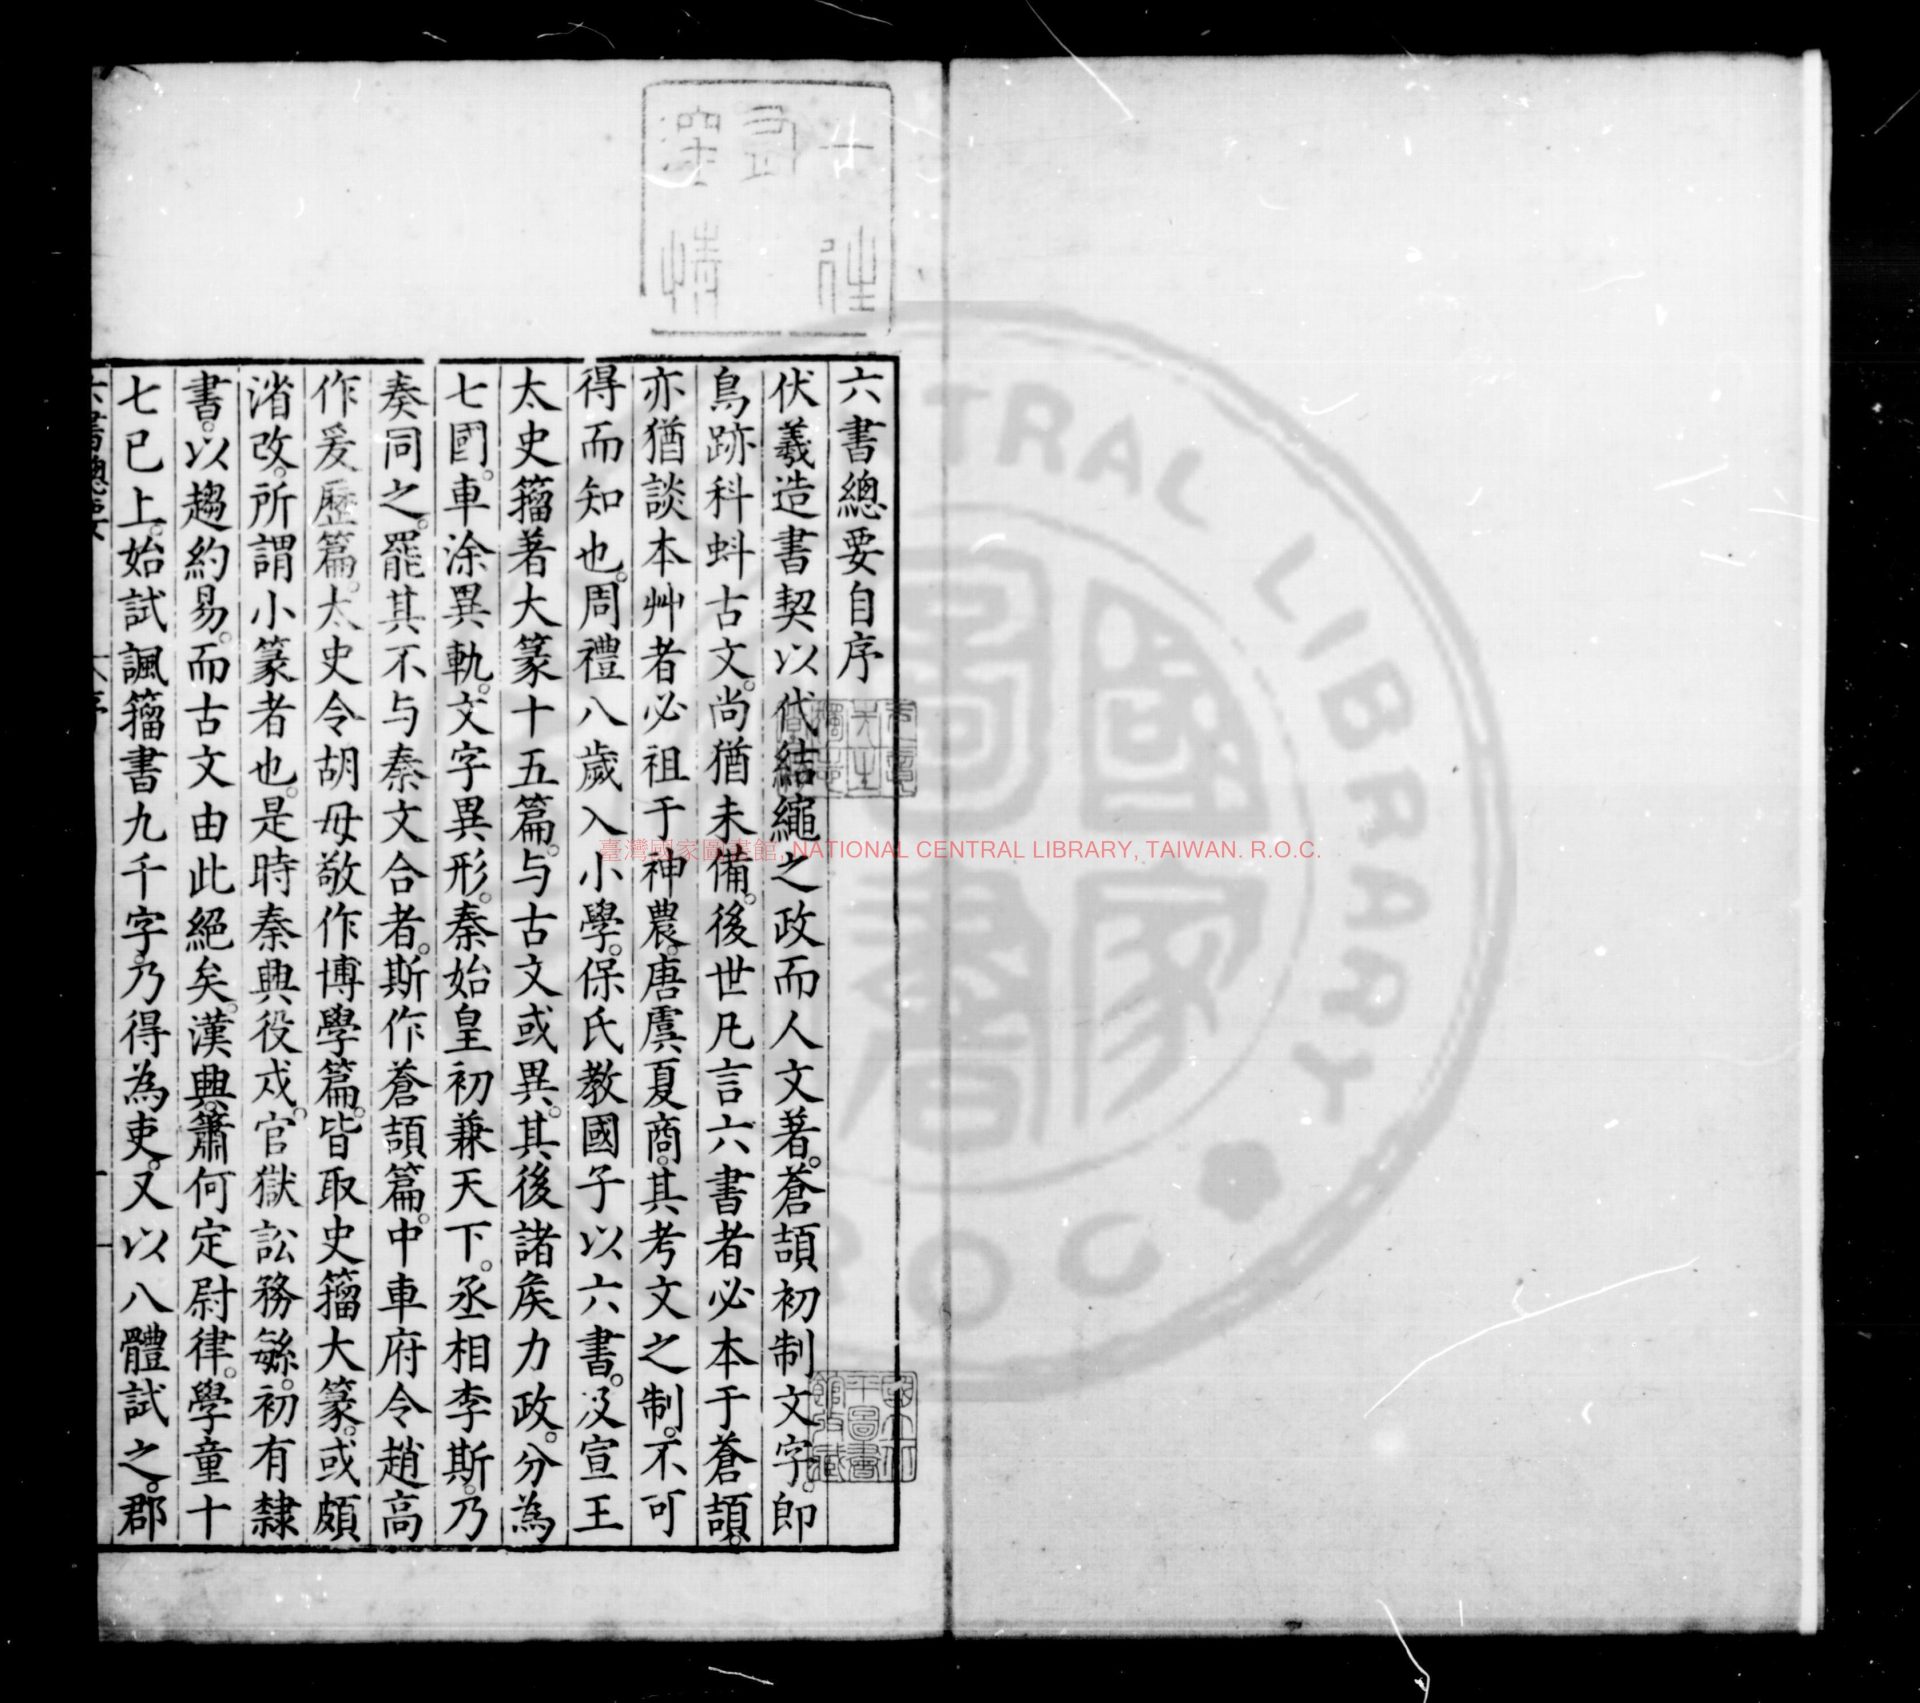 六書總要自序
伏羲造書契以代結繩之政而人文著。蒼頡初制文字。即
鳥跡科蚪古文。尚猶未備。後世凡言六書者必本于蒼頡。
亦猶談本艸者必祖于神農。唐虞夏商。其考文之制。不可
得而知也。周禮八歲入小學。保氏教國子以六書。及宣王
太史籀著大篆十五篇。与古文或異。其後諸矦力政。分為
七國。車涂異軌。文字異形。秦始皇初兼天下。丞相李斯。乃
奏同之。罷其不与秦文合者。斯作蒼頡篇。中車府令趙高
作爰歷篇。太史令胡毋敬作博學篇。皆取史籀大篆。或頗
渻改。所謂小篆者也。是時秦興役戍。官獄訟務緐。初有隸
書。以趨約易。而古文由此絕矣。漢興。簫何定尉律。學童十
七已上。始試諷籀書九千字。乃得為吏。又以八體試之。郡
六書總要 大序 一
臺灣國家圖書館, NATIONAL CENTRAL LIBRARY, TAIWAN. R.O.C.
國家圖書
CENTRAL LIBRARY
R.O.C